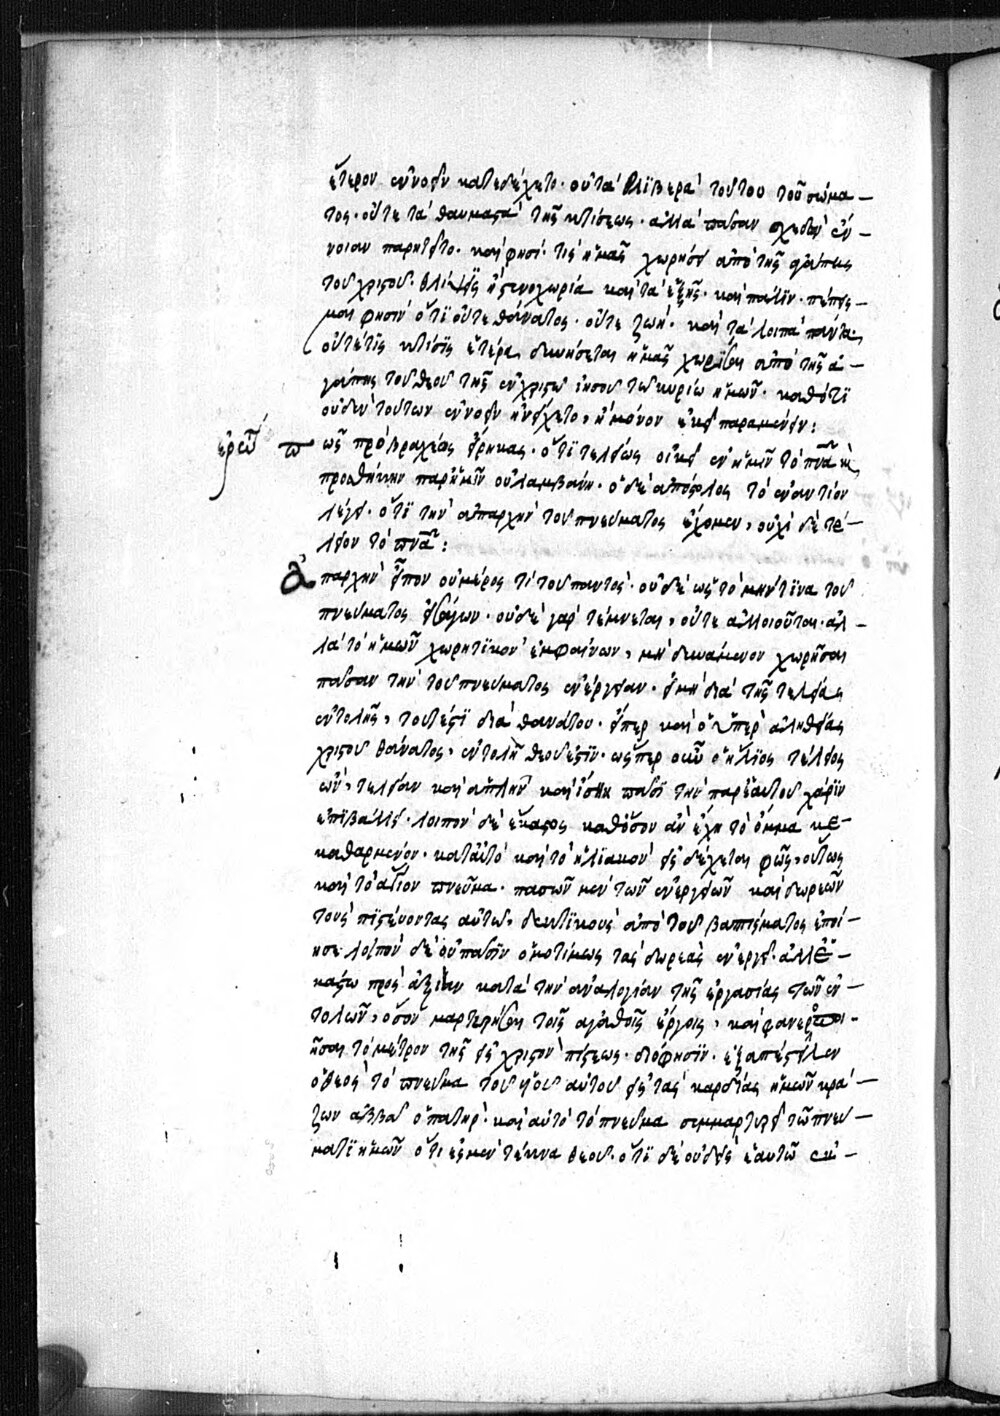 ἕτερον εὐνοεῖν κατεδέχετο· οὔτα θλιβερὰ τούτου τοῦ σώμα –
τος· οὔτε τὰ θαυμαστὰ τῆς κτίσεως· ἀλλὰ πᾶσαν σχεδὸν ἔν –
νοιαν παρητεῖτο· καὶ φησί· τίς ἡμᾶς χωρήσει ἀπὸ τῆς ἀγάπης
τοῦ χριστοῦ· θλίψϊς ἢ στενοχωρία καὶ τὰ ἑξῆς· καὶ πάλϊν· πέπεισ –
μαι φησὶν ὅτϊ οὔτε θάνατος· οὔτε ζωή· καὶ τὰ λοιπὰ πάντα·
οὔτέ τϊς κτίσϊς ἑτέρα δυνήσεται ἡμᾶς χωρίσαι ἀπὸ τῆς ἀ –
γάπης τοῦ θεοῦ τῆς ἐν χριστῷ ἰησοῦ τῷ κυρίῳ ἡμῶν· καθότϊ
οὐδὲν τούτων εὐνοεῖν ἠνείχετο, ἢ μόνον ἐκεῖ παραμένειν:
ἐρώ π ὡς πρὸ βραχέως εἴρηκας· ὅτϊ τελείως οἰκεῖ ἐν ἡμῖν τὸ πνᾶ κ
προσθήκην παρ ἡμῖν οὐ λαμβάνει· ὁ δὲ ἀπόστολος τὸ ἐναντίον
λέγει· ὅτϊ τὴν ἀπαρχὴν τοῦ πνεύματος ἔχομεν, οὐχὶ δὲ τέ –
λειον τὸ πνᾶ:
ἀπαρχὴν εἶπον οὐ μέρος τί τοῦ παντός· οὐδὲ ὡς τὸ μήν τϊνα τοῦ
πνεύματος εἰσάγων· οὐδὲ γὰρ τέμνεται, οὔτε ἀλλοιοῦται· ἀλ –
λὰ τὸ ἡμῶν χωρητϊκὸν ἐμφαίνων, μὴ δυνάμενον χωρῆσαι
πᾶσαν τὴν τοῦ πνεύματος ἐνέργειαν· εἰ μὴ διὰ τῆς τελείας
ἐντολῆς, τουτέστϊ διὰ θανάτου· εἴπερ καὶ ὁ ὑπὲρ ἀληθείας
χριστοῦ θάνατος, ἐντολὴ θεοῦ ἐστϊν· ὥσπερ οὖν ὁ ἥλϊος τέλειος
ὤν, τελείαν καὶ ἁπλὴν καὶ ἴσην πᾶσϊ τὴν παρ ἑαυτοῦ χάρϊν
ἐπϊβάλλει· λοιπὸν δὲ ἕκαστος καθόσον ἂν ἔχῃ τὸ ὄμμα κε –
καθαρμένον· κατἀυτὸ καὶ τὸ ἡλϊακὸν εἰσδέχεται φῶς, οὕτως
καὶ τὸ ἅγϊον πνεῦμα· πασῶν μὲν τῶν ἐνεργειῶν καὶ δωρεῶν
τοὺς πϊστεύοντας αὐτῷ, δεκτϊκοὺς ἀπὸ τοῦ βαπτίσματος ἐποί –
ησε λοιπὸν δὲ οὐ πᾶσϊν ὁμοτίμως τὰς δωρεὰς ἐνεργεῖ· ἀλλ ἑ –
κάστῳ πρὸς ἀξίαν κατὰ τὴν ἀναλογίαν τῆς ἐργασίας τῶν ἐν –
τολῶν, ὅσον μαρτυρῆσαι τοῖς ἀγαθοῖς ἔργοις, καὶ φανεροποι –
ῆσαι τὸ μέτρον τῆς εἰς χριστὸν πίστεως· διό φησϊν· ἐξαπέστειλεν
ὁ θεὸς τὸ πνεῦμα τοῦ υἱοῦ αὐτοῦ εἰς τὰς καρδίας ἡμῶν κρά –
ζων ἀββᾶ ὁ πατήρ· καὶ αὐτὸ τὸ πνεῦμα συμμαρτυρεῖ τῷ πνευ –
ματϊ ἡμῶν ὅτι ἐσμὲν τέκνα θεοῦ· ὅτϊ δὲ οὐδεὶς ἑαυτῷ ἐν –